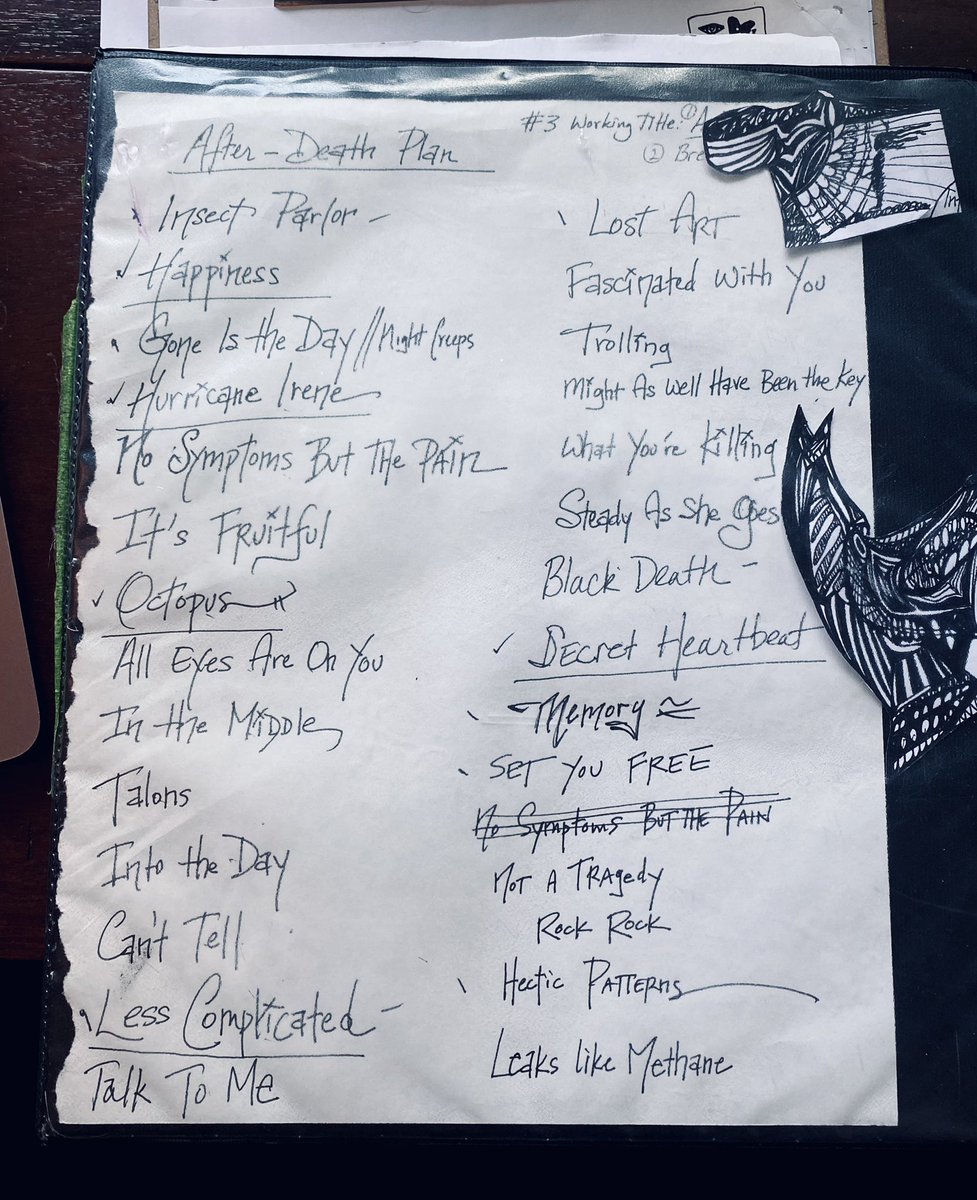 #3 Working Title: ① A
② Bre
After-Death Plan
Insect Parlor -
✓ Happiness
Gone Is the Day // Night Creeps
✓ Hurricane Irene
No Symptoms But The Pain
It's Fruitful
✓ Octopus
All Eyes Are On You
In the Middle
Talons
Into the Day
Can't Tell
Less Complicated -
Talk To Me
Lost Art
Fascinated With You
Trolling
Might As Well Have Been the Key
What You're Killing
Steady As She Goes
Black Death -
✓ Secret Heartbeat
Memory
Set You Free
No Symptoms But The Pain
Not A Tragedy
Rock Rock
Hectic Patterns
Leaks like Methane